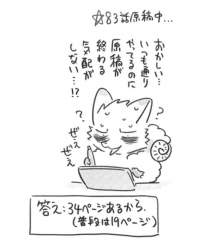 ☆83話原稿中…
おかしい…
いつも通り
やってるのに
原稿が
終わる
気配が
しない…!?
?
?
ぜぇ
ぜぇ
答え:34ページあるから。
(普段は19ページ)